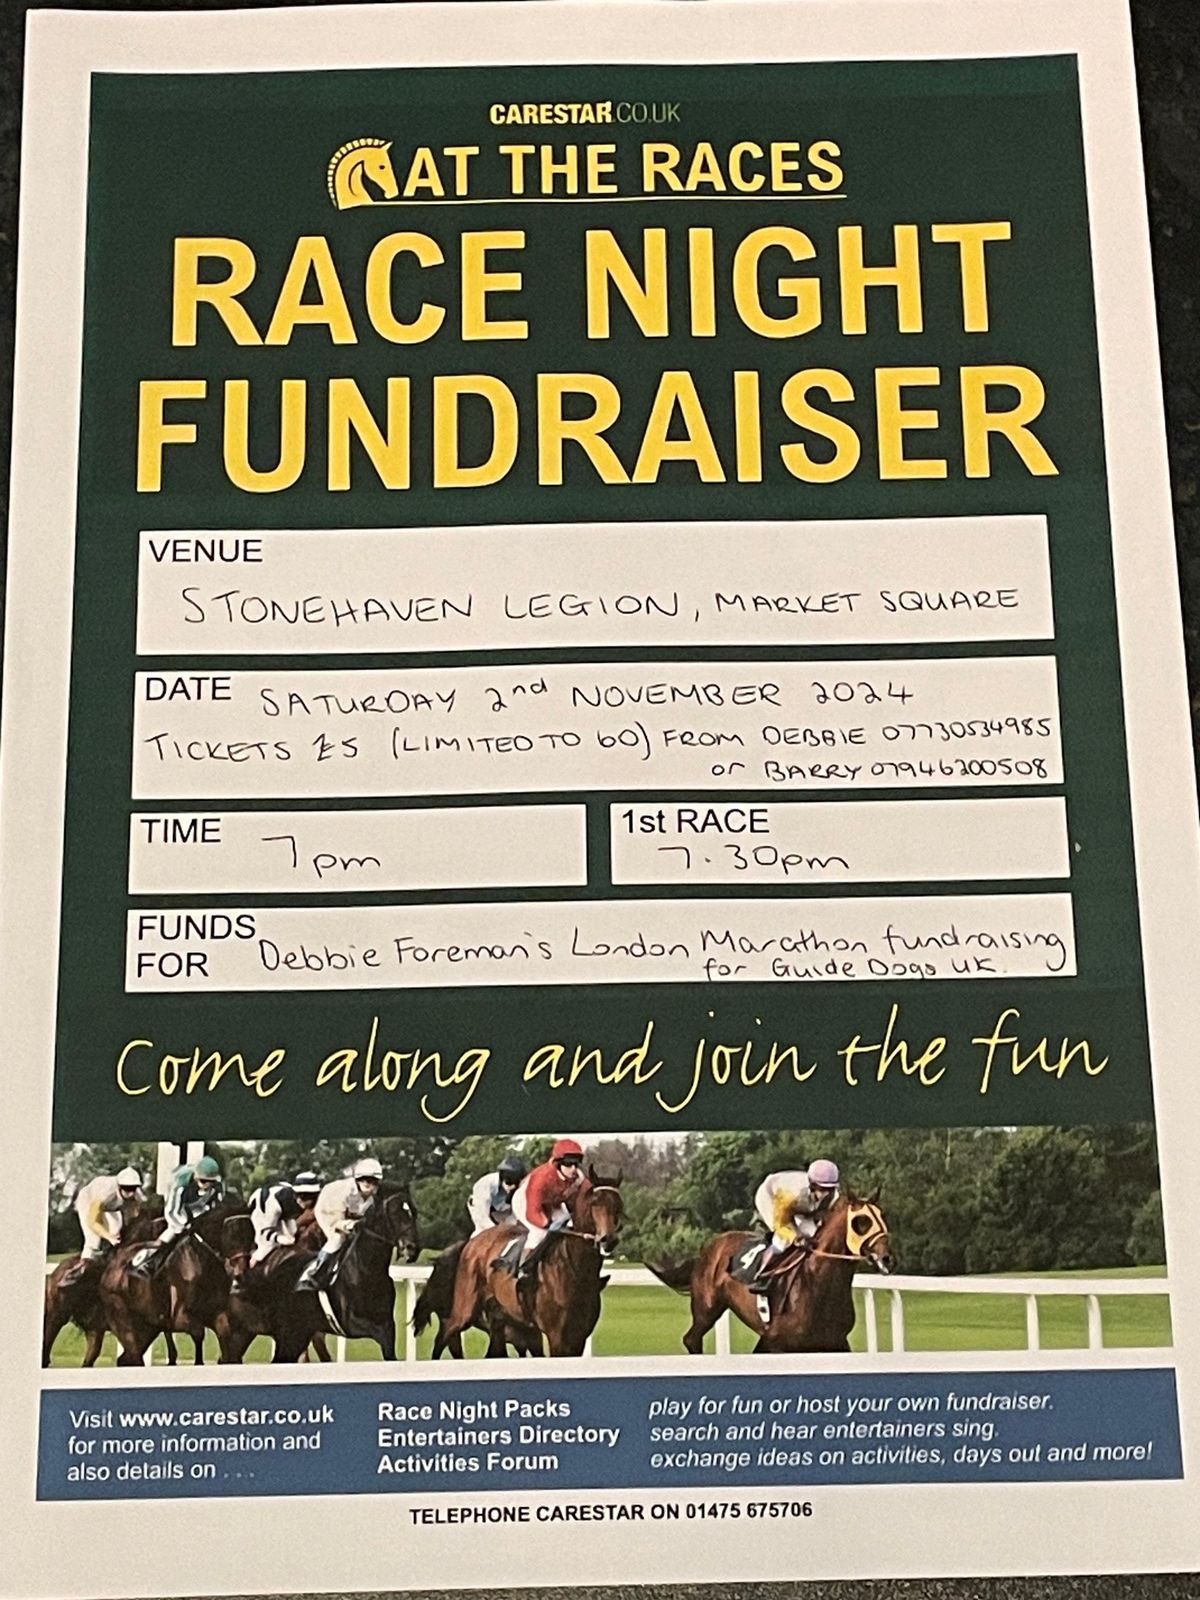 CARESTAR.CO.UK
AT THE RACES
RACE NIGHT
FUNDRAISER
VENUE
STONEHAVEN LEGION, MARKET SQUARE
DATE SATURDAY 2nd NOVEMBER 2024
TICKETS £5 (LIMITED TO 60) FROM DEBBIE 07730534985
or BARRY 07946200508
TIME 7pm
1st RACE
7.30pm
FUNDS FOR Debbie Foreman's London Marathon fundraising
for Guide Dogs UK.
Come along and join the fun
Visit www.carestar.co.uk
for more information and
also details on . . .
Race Night Packs
Entertainers Directory
Activities Forum
play for fun or host your own fundraiser.
search and hear entertainers sing.
exchange ideas on activities, days out and more!
TELEPHONE CARESTAR ON 01475 675706